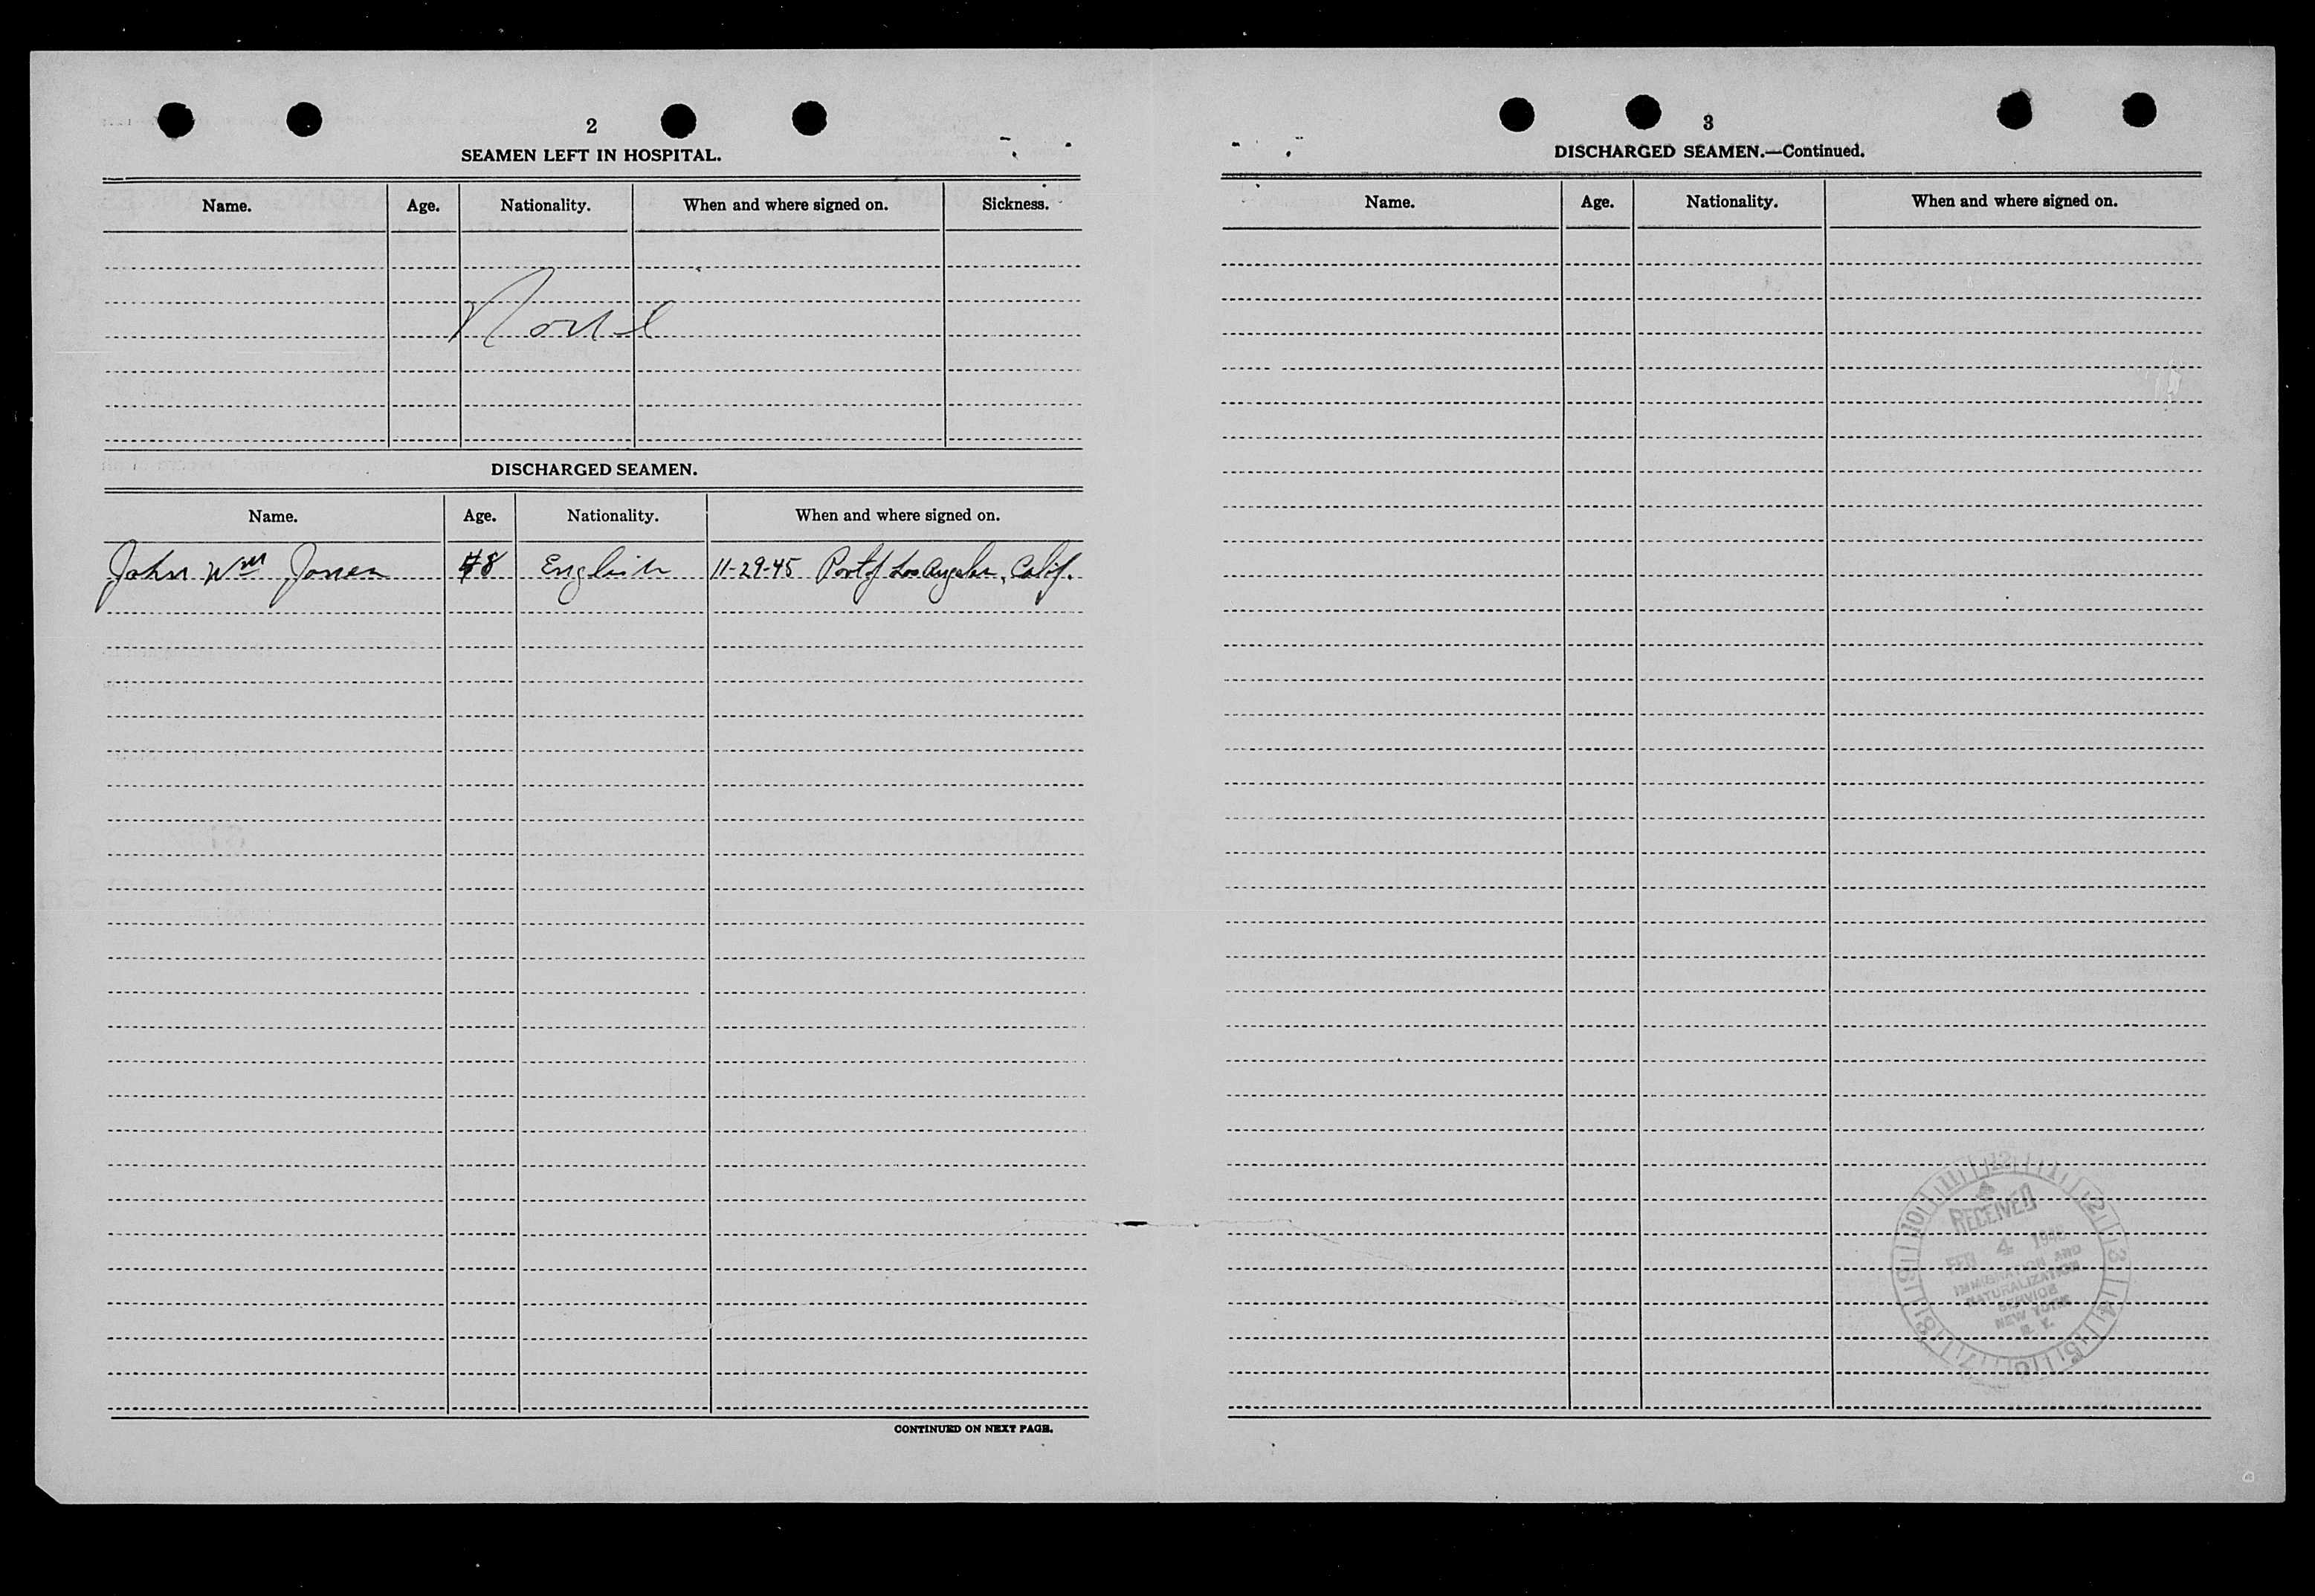 2
SEAMEN LEFT IN HOSPITAL.
Name. Age. Nationality. When and where signed on. Sickness.
None
DISCHARGED SEAMEN.
Name. Age. Nationality. When and where signed on.
John Wm Jones 48 English 11-29-45 Port of Los Angeles, Calif.
CONTINUED ON NEXT PAGE.
3
DISCHARGED SEAMEN.—Continued.
Name. Age. Nationality. When and where signed on.
12 1 2 3 4 5 6 7 8 9 10 11
RECEIVED
FEB 4 1946
IMMIGRATION AND
NATURALIZATION
SERVICE
NEW YORK
N. Y.